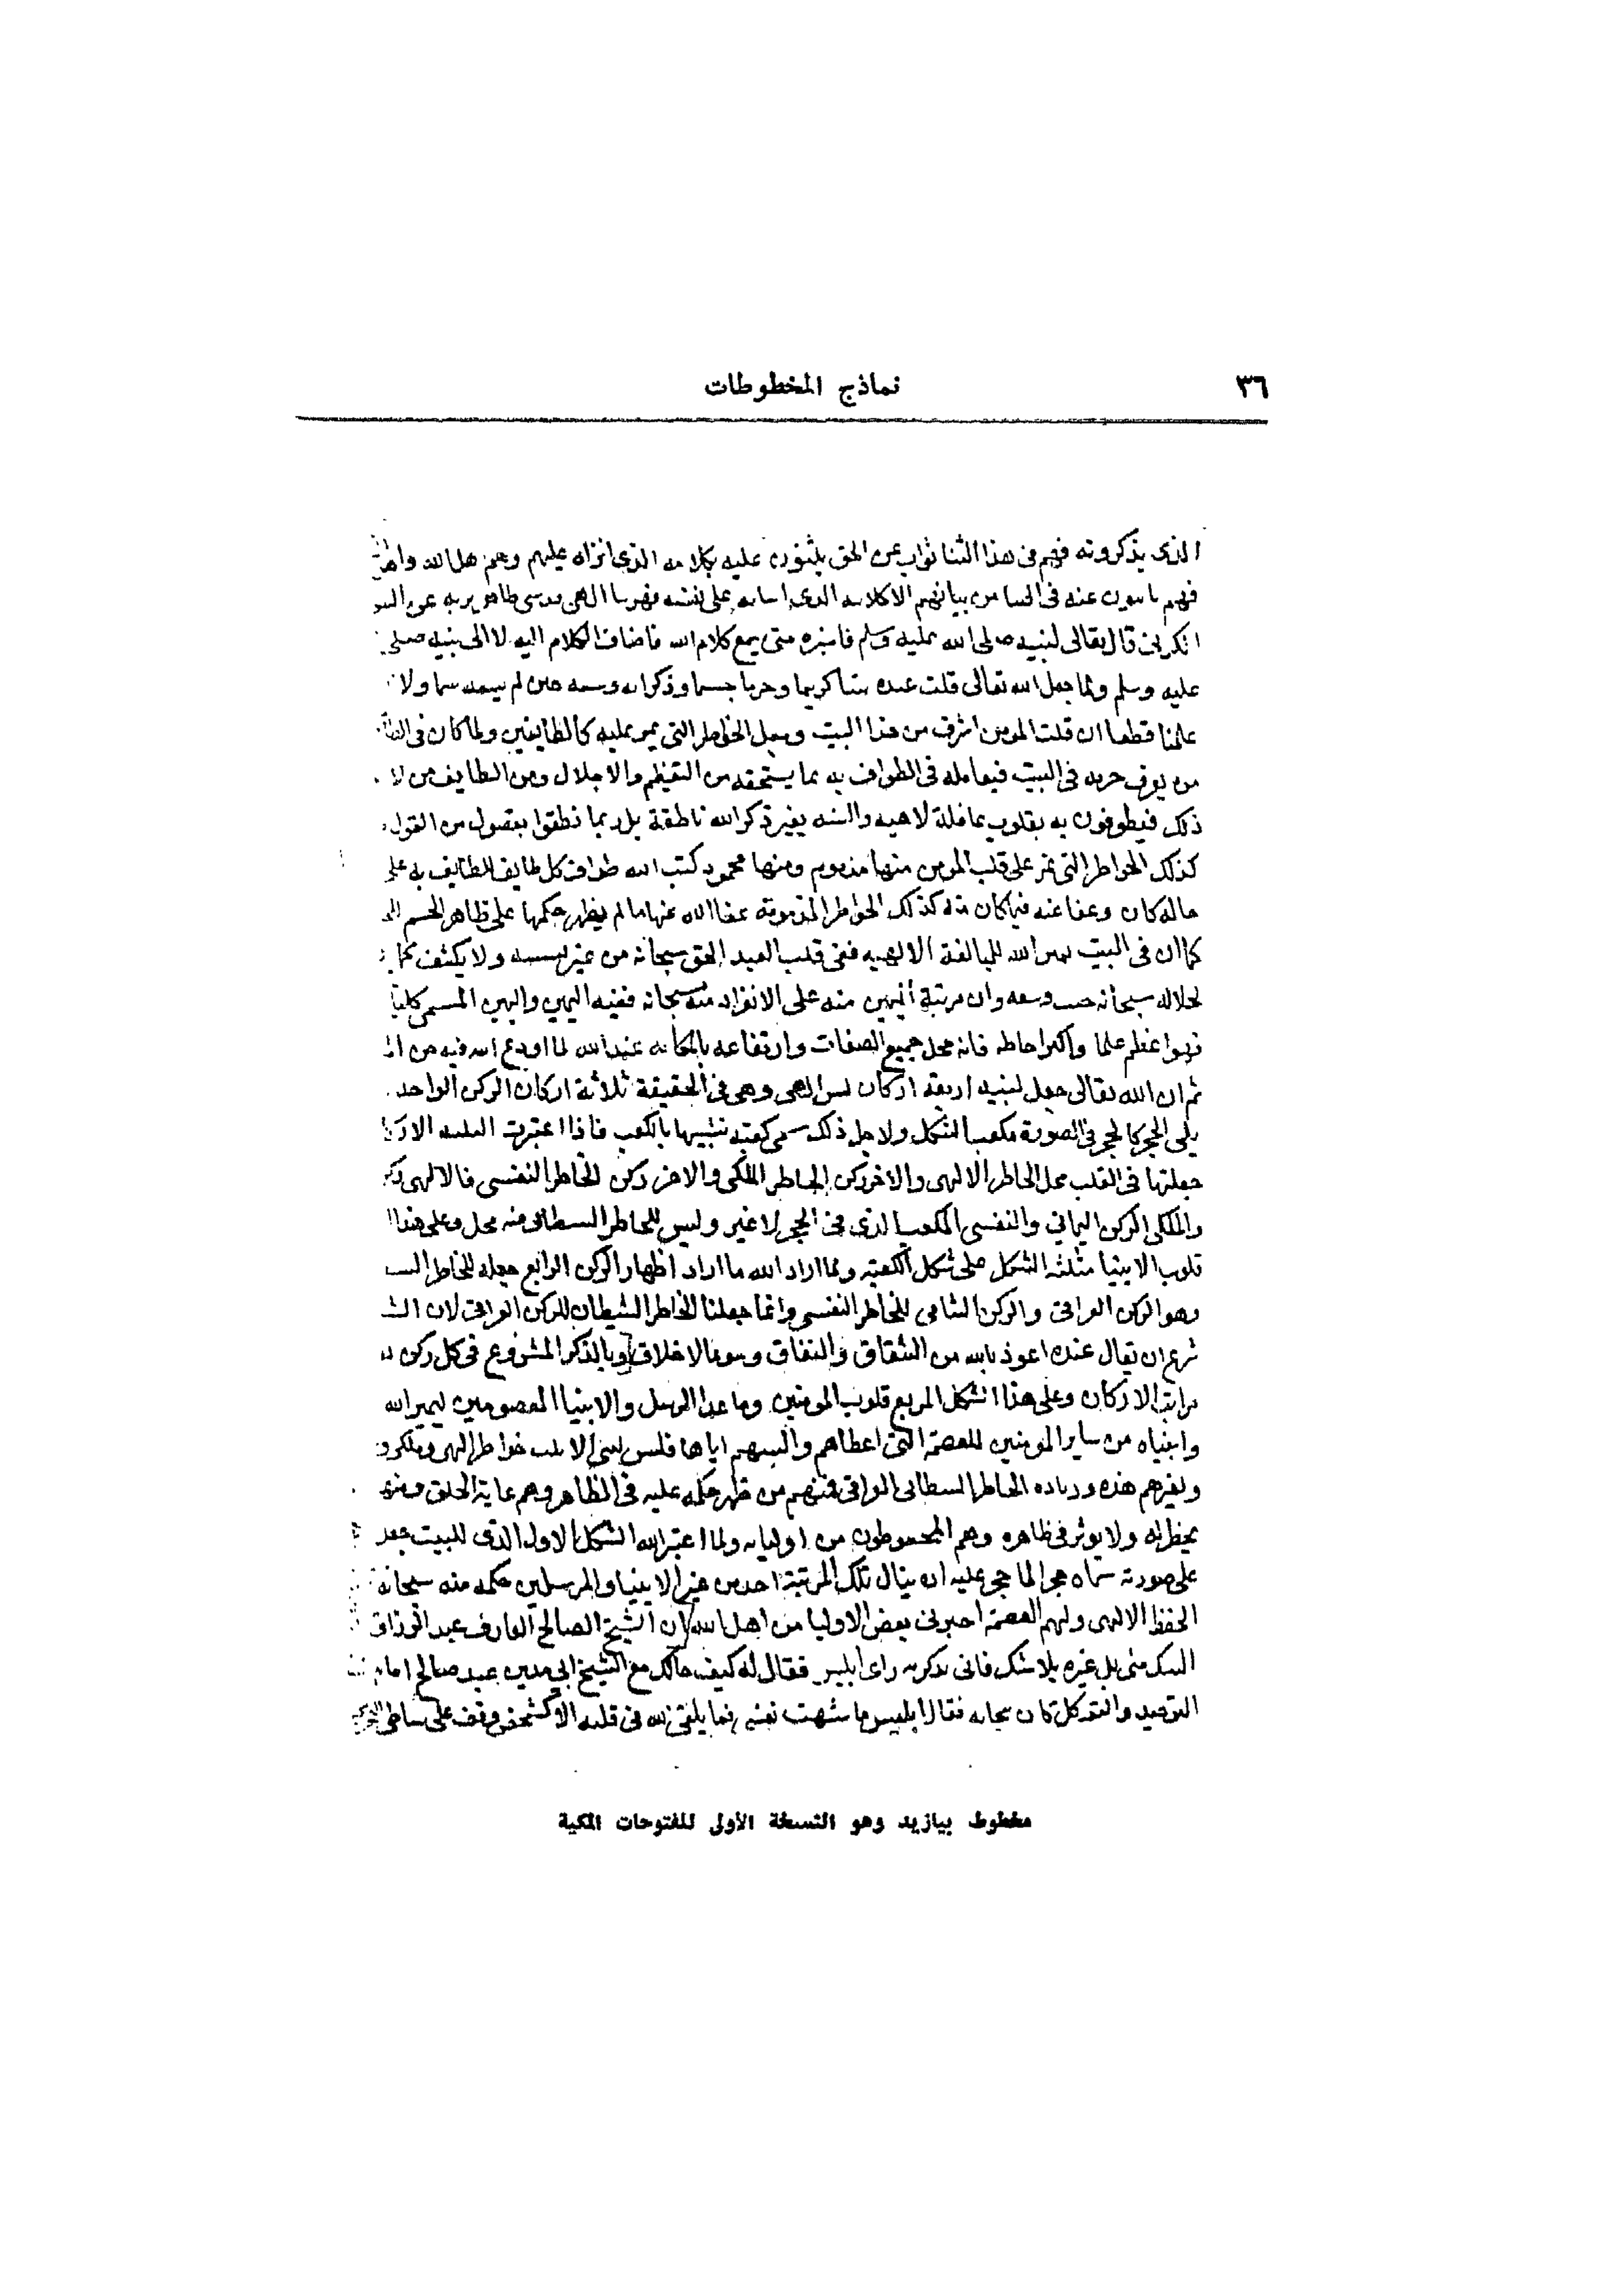 ٣٦
نماذج المخطوطات
الذى يذكرونه فهم فى هذا الثنا نواب عن الحق يثنون عليه بكلامه الذى انزله عليهم وهم اهل الله
فهم عنه فى بيانهم الا كلامه الذى على نفسه
قال تعالى لنبيه صلى الله عليه وسلم فاجره حتى يسمع كلام الله فاضاف الكلام اليه لا الى نبيه صلى
عليه وسلم ولما جعل الله تعالى قلب عبده بيتا كريما وحرما جسيما وذكر انه وسعه حين لم يسعه سما ولا
علمنا قطعا ان قلب المومن اشرف من هذا البيت وجعل الخواطر التى تمر عليه كالطايفين ولما كان فى
من يعرف حرمه فى البيت فيعامله فى الطواف به بما يستحقه من التعظيم والاجلال ومن الطايف من لا
ذلك فيطوفون به بقلوب غافلة لاهيه والسنه بغير ذكر الله ناطقة بل ربما نطقوا بفضول من القول
كذلك الخواطر التى تمر على قلب المومن منها مذموم ومنها محمود كتب الله طواف كل طايف للطايف به على
حاله كان وعفا عنه فيما كان منه كذلك الخواطر المذمومة عفا الله عنها ما لم يظهر حكمها على ظاهر الجسم
كما ان فى البيت يمين الله للمبايعة الالهيه ففى قلب العبد الحق سبحانه من غير تشبيه ولا تكييف كما
لجلاله سبحانه حيث وسعه واين مرتبة اليمين منه على الانفراد منه سبحانه ففيه اليمين واليمين المسمى
فهو اعظم علما واكثر احاطه فانه محل جميع الصفات وارتفاعه بالمكانه عند الله لما اودع الله فيه من
ثم ان الله تعالى جعل لبيته اربعة اركان لسر الهى وهى فى الحقيقة ثلاثة اركان الركن الواحد
يلى الحجر كالحجر فى الصورة مكعب الشكل ولاجل ذلك سمى كعبة تشبيها بالكعب فاذا اعتبرت الثلاثه
جعلتها فى القلب محل الخاطر الالهى والاخر ركن الخاطر الملكى والاخر ركن الخاطر النفسى فالالهى
والملكى الركن اليمانى والنفسى المكعب الذى فى الحجر لا غير وليس للخاطر الشيطانى فيه محل وعلى هذا
قلوب الانبيا مثلثة الشكل على شكل الكعبة ولما اراد الله ما اراد اظهار الركن الرابع جعله للخاطر
وهو الركن العراقى والركن الشامى للخاطر النفسى وانما جعلنا الخاطر الشيطانى للركن العراقى لان
شرع ان يقال عنده اعوذ بالله من الشقاق والنفاق وسوء الاخلاق وبالذكر المشروع فى كل ركن
مراتب الاركان وعلى هذا الشكل المربع قلوب المومنين وما عدا الرسل والانبيا المعصومين ليميز الله
وانبياه من ساير المومنين للعصمة التى اعطاهم والبسهم اياها فليس لنبى الا ثلث خواطر الهى وملكى
ولغيرهم هذه وزياده الخاطر الشيطانى العراقى فمنهم من ظهر حكمه عليه فى الظاهر وهم عامة الخلق ومنهم
يخطر له ولا يوثر فى ظاهره وهم المحفوظون من اوليايه ولما اعتبر الله الشكل الاول الذى للبيت جعل
على صورته سماه حجرا لما حجر عليه ان ينال تلك المرتبة احد من غير الانبيا والمرسلين حكمة منه سبحانه
الحفظ الالهى ولهم العصمة اخبرنى بعض الاوليا من اهل الله ان الشيخ الصالح العارف عبد الرزاق
الشك منى بل غيره بلا شك فانى تذكرته راى ابليس فقال له كيف حالك مع الشيخ ابى مدين عبد صالح امام
التوحيد والتوكل كان ببجايه فقال ابليس ما شبهت نفسى فيما يلقى له فى قلبه الا كشخص وقف على شاطى
مخطوط بيازيد وهو النسخة الأولى للفتوحات المكية